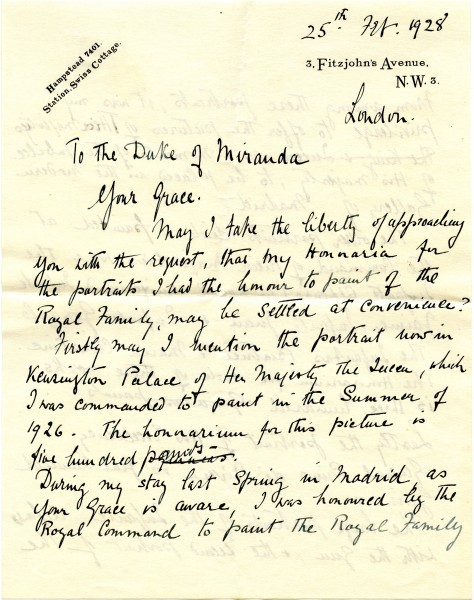 25th Feb. 1928
Hampstead 7401.
Station, Swiss Cottage.
3, Fitzjohn's Avenue,
N.W. 3.
London.
To the Duke of Miranda
Your Grace.
May I take the liberty of approaching
you with the request, that my Honoraria for
the portraits I had the honour to paint of the
Royal Family, may be settled at convenience?
Firstly may I mention the portrait now in
Kensington Palace of Her Majesty the Queen, which
I was commanded to paint in the Summer of
1926. The honorarium for this picture is
five hundred pounds.
During my stay last Spring in Madrid, as
Your Grace is aware, I was honoured by the
Royal Command to paint the Royal Family